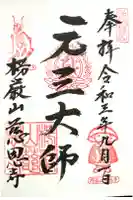 奉拝 令和三年九月一日
元三大師
楞厳山 慈恩寺